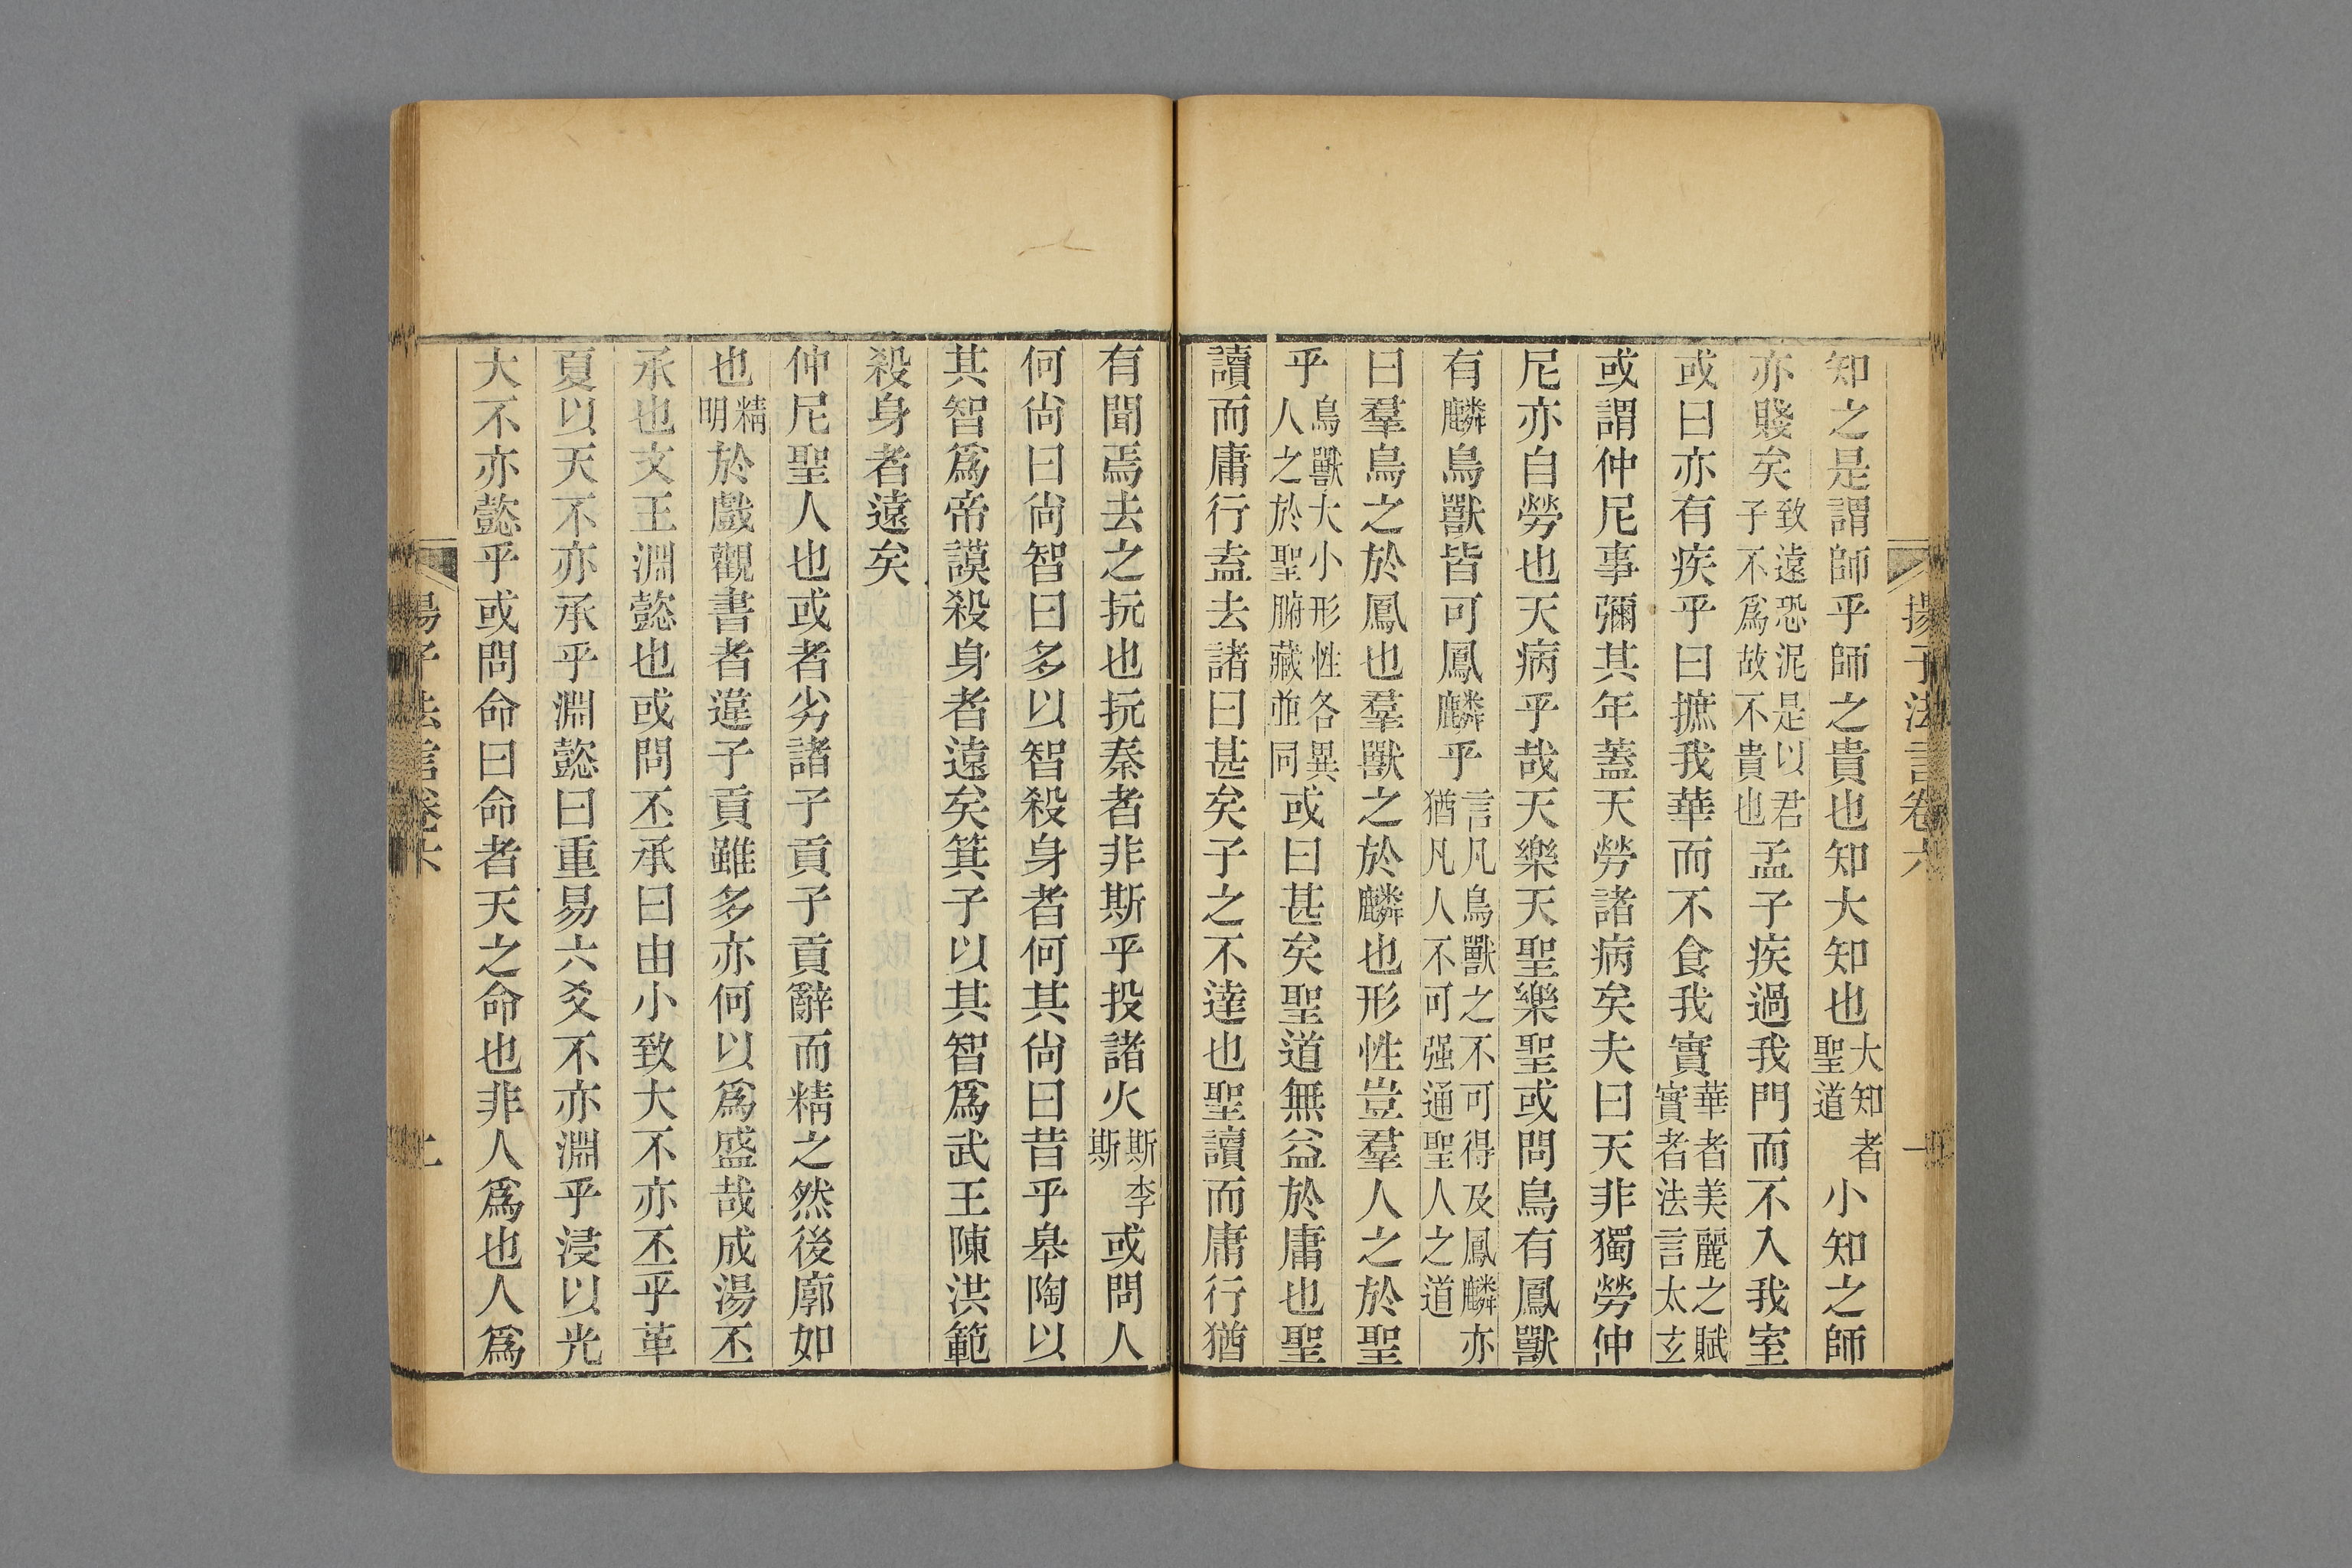 揚子法言卷六
知之是謂師乎師之貴也知大知也大知者聖道小知之師
亦賤矣致遠恐泥是以君子不爲故不貴也孟子疾過我門而不入我室
或曰亦有疾乎曰摭我華而不食我實華者美麗之賦實者法言太玄
或謂仲尼事彌其年蓋天勞諸病矣夫曰天非獨勞仲
尼亦自勞也天病乎哉天樂天聖樂聖或問鳥有鳳獸
有麟鳥獸皆可鳳麟乎言凡鳥獸之不可得及鳳麟亦猶凡人不可强通聖人之道
曰羣鳥之於鳳也羣獸之於麟也形性豈羣人之於聖
乎鳥獸大小形性各異人之於聖腑藏並同或曰甚矣聖道無益於庸也聖
讀而庸行盍去諸曰甚矣子之不達也聖讀而庸行猶
有聞焉去之抏也抏秦者非斯乎投諸火斯李斯或問人
何尙曰尙智曰多以智殺身者何其尙曰昔乎皋陶以
其智爲帝謨殺身者遠矣箕子以其智爲武王陳洪範
殺身者遠矣
仲尼聖人也或者劣諸子貢子貢辭而精之然後廓如
也精明於戲觀書者違子貢雖多亦何以爲盛哉成湯丕
承也文王淵懿也或問丕承曰由小致大不亦丕乎革
夏以天不亦承乎淵懿曰重易六爻不亦淵乎浸以光
大不亦懿乎或問命曰命者天之命也非人爲也人爲